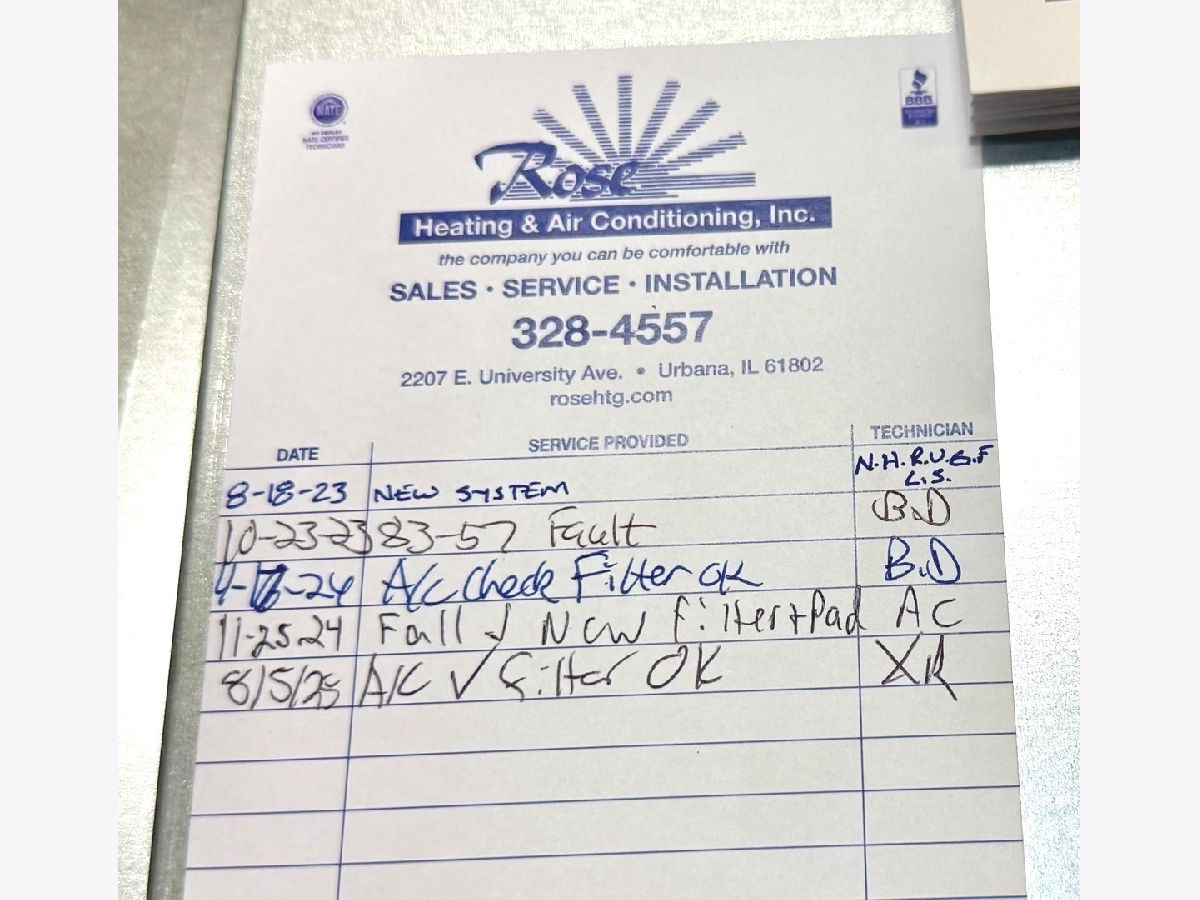 NATE
WE EMPLOY
NATE-CERTIFIED
TECHNICIANS
BBB
Rose
Heating & Air Conditioning, Inc.
the company you can be comfortable with
SALES · SERVICE · INSTALLATION
328-4557
2207 E. University Ave. • Urbana, IL 61802
rosehtg.com
DATE SERVICE PROVIDED TECHNICIAN
8-18-23 NEW SYSTEM N.H. R.U. G.F L.S.
10-23-23 83-57 Fault B.D
A/C Check Filter OK B.D
11-25-24 Fall ✓ New filter+Pad AC
8/5/25 A/C ✓ filter OK XR